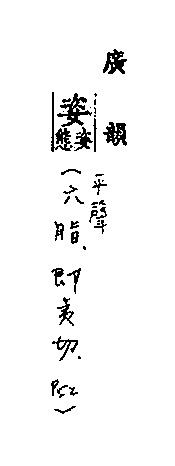 廣韻
姿
姿態
(平聲
六脂、即夷切、P52)